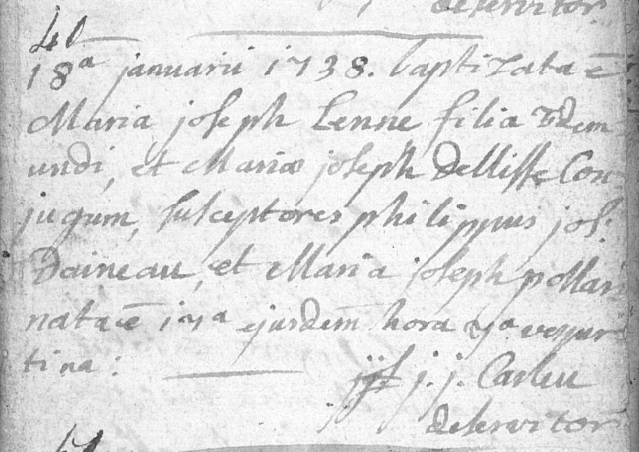 deservitor
40
18ª januarii 1738. baptizata ē
Maria joseph Lenne filia Edm
undi, et Mariæ joseph Dellisse Con
jugum, susceptores philippus jos:
Daineau, et Maria joseph pollar
nata ē 17ª ejusdem hora 7ª vespur
tina:
j.j. Carlier
deservitor